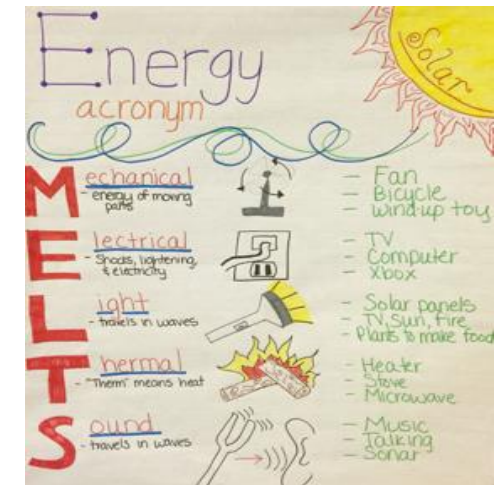 Energy
Solar
acronym
Mechanical
- energy of moving parts
- Fan
- Bicycle
- Wind-up toy
Electrical
- Shocks, lightening, & electricity
- TV
- Computer
- Xbox
Light
- travels in waves
- Solar panels
- TV, Sun, fire
- Plants to make food
Thermal
- "Therm" means heat
- Heater
- Stove
- Microwave
Sound
- travels in waves
- Music
- Talking
- Sonar